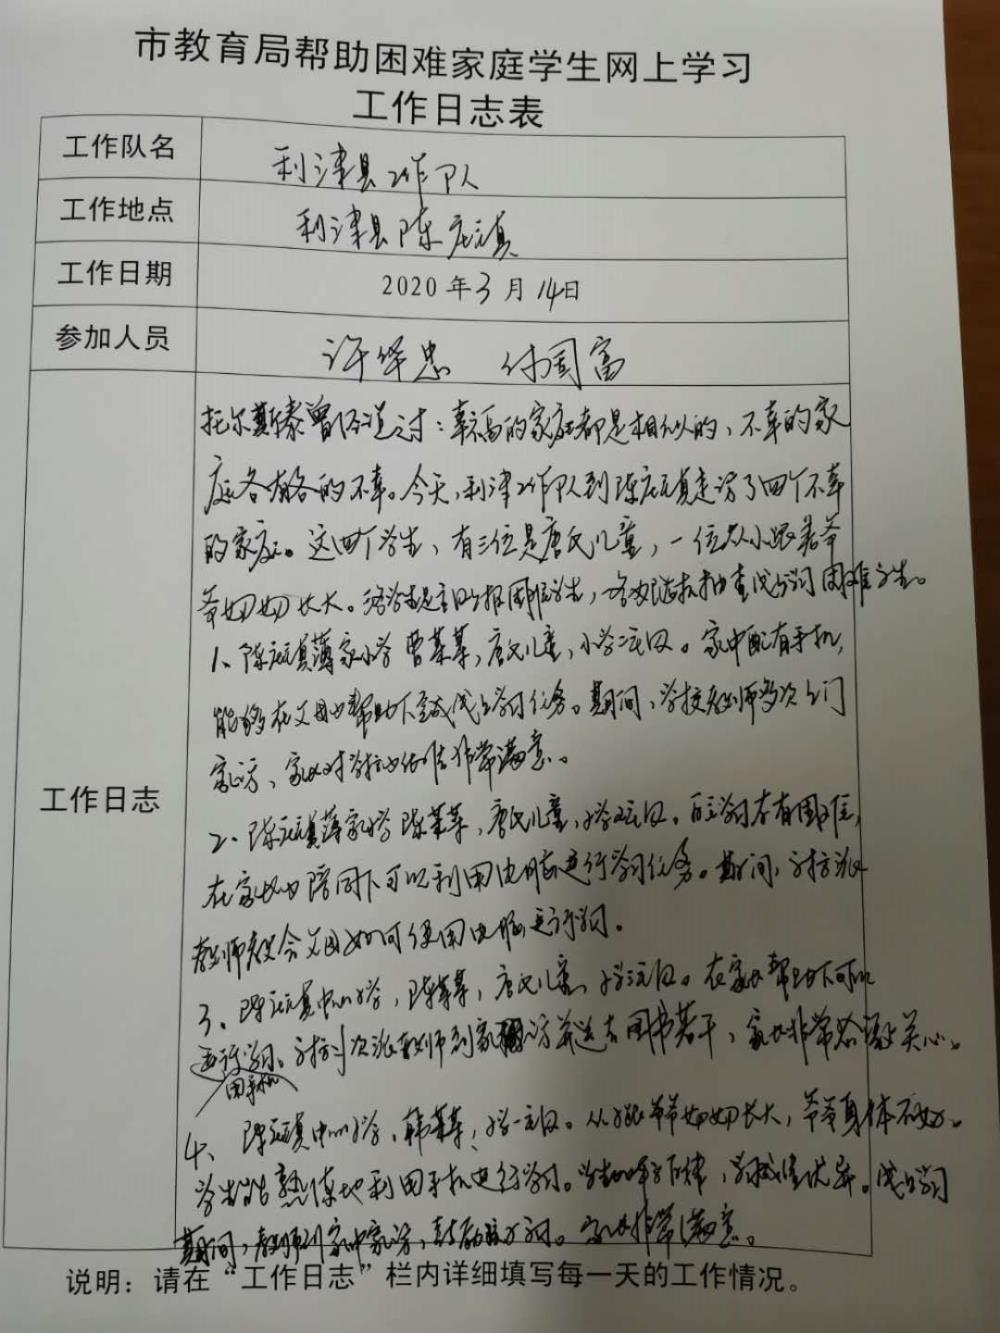 市教育局帮助困难家庭学生网上学习
工作日志表
工作队名 利津县工作队
工作地点 利津县陈庄镇
工作日期 2020年3月14日
参加人员 许华忠 付国富
工作日志
托尔斯泰曾经说过：幸福的家庭都是相似的，不幸的家
庭各有各的不幸。今天，利津工作队到陈庄镇走访了四个不幸
的家庭。这四个学生，有三位是唐氏儿童，一位从小跟着爷
爷奶奶长大。困难学生，线上学习困难学生。
1、陈庄镇薄家小学 曹某某，唐氏儿童，小学二年级。家中配有手机，
能够在父母的帮助下完成线上学习任务。期间，学校教师多次上门
家访，家长对学校的工作非常满意。
2、陈庄镇薄家小学 陈某某，唐氏儿童，小学年级。自主学习存有困难，
在家长的陪同下可以利用电脑进行学习任务。期间，学校派
教师教会父母如何使用电脑进行学习。
3、陈庄镇中心小学，陈某某，唐氏儿童，小学三年级。在家长帮助下可以
用手机
进行学习。学校派教师到家访并送去图书若干，家长非常感谢关心。
4、陈庄镇中心小学，韩某某，小学一年级。从小跟爷爷奶奶长大，爷爷身体不好。
学生能熟练地利用手机进行学习。学生自律，学习成绩优异。线上学习
期间，教师到家中家访，鼓励学习。家长非常满意。
说明：请在“工作日志”栏内详细填写每一天的工作情况。